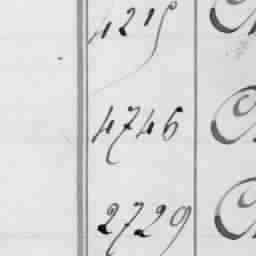 4215
4746
2729